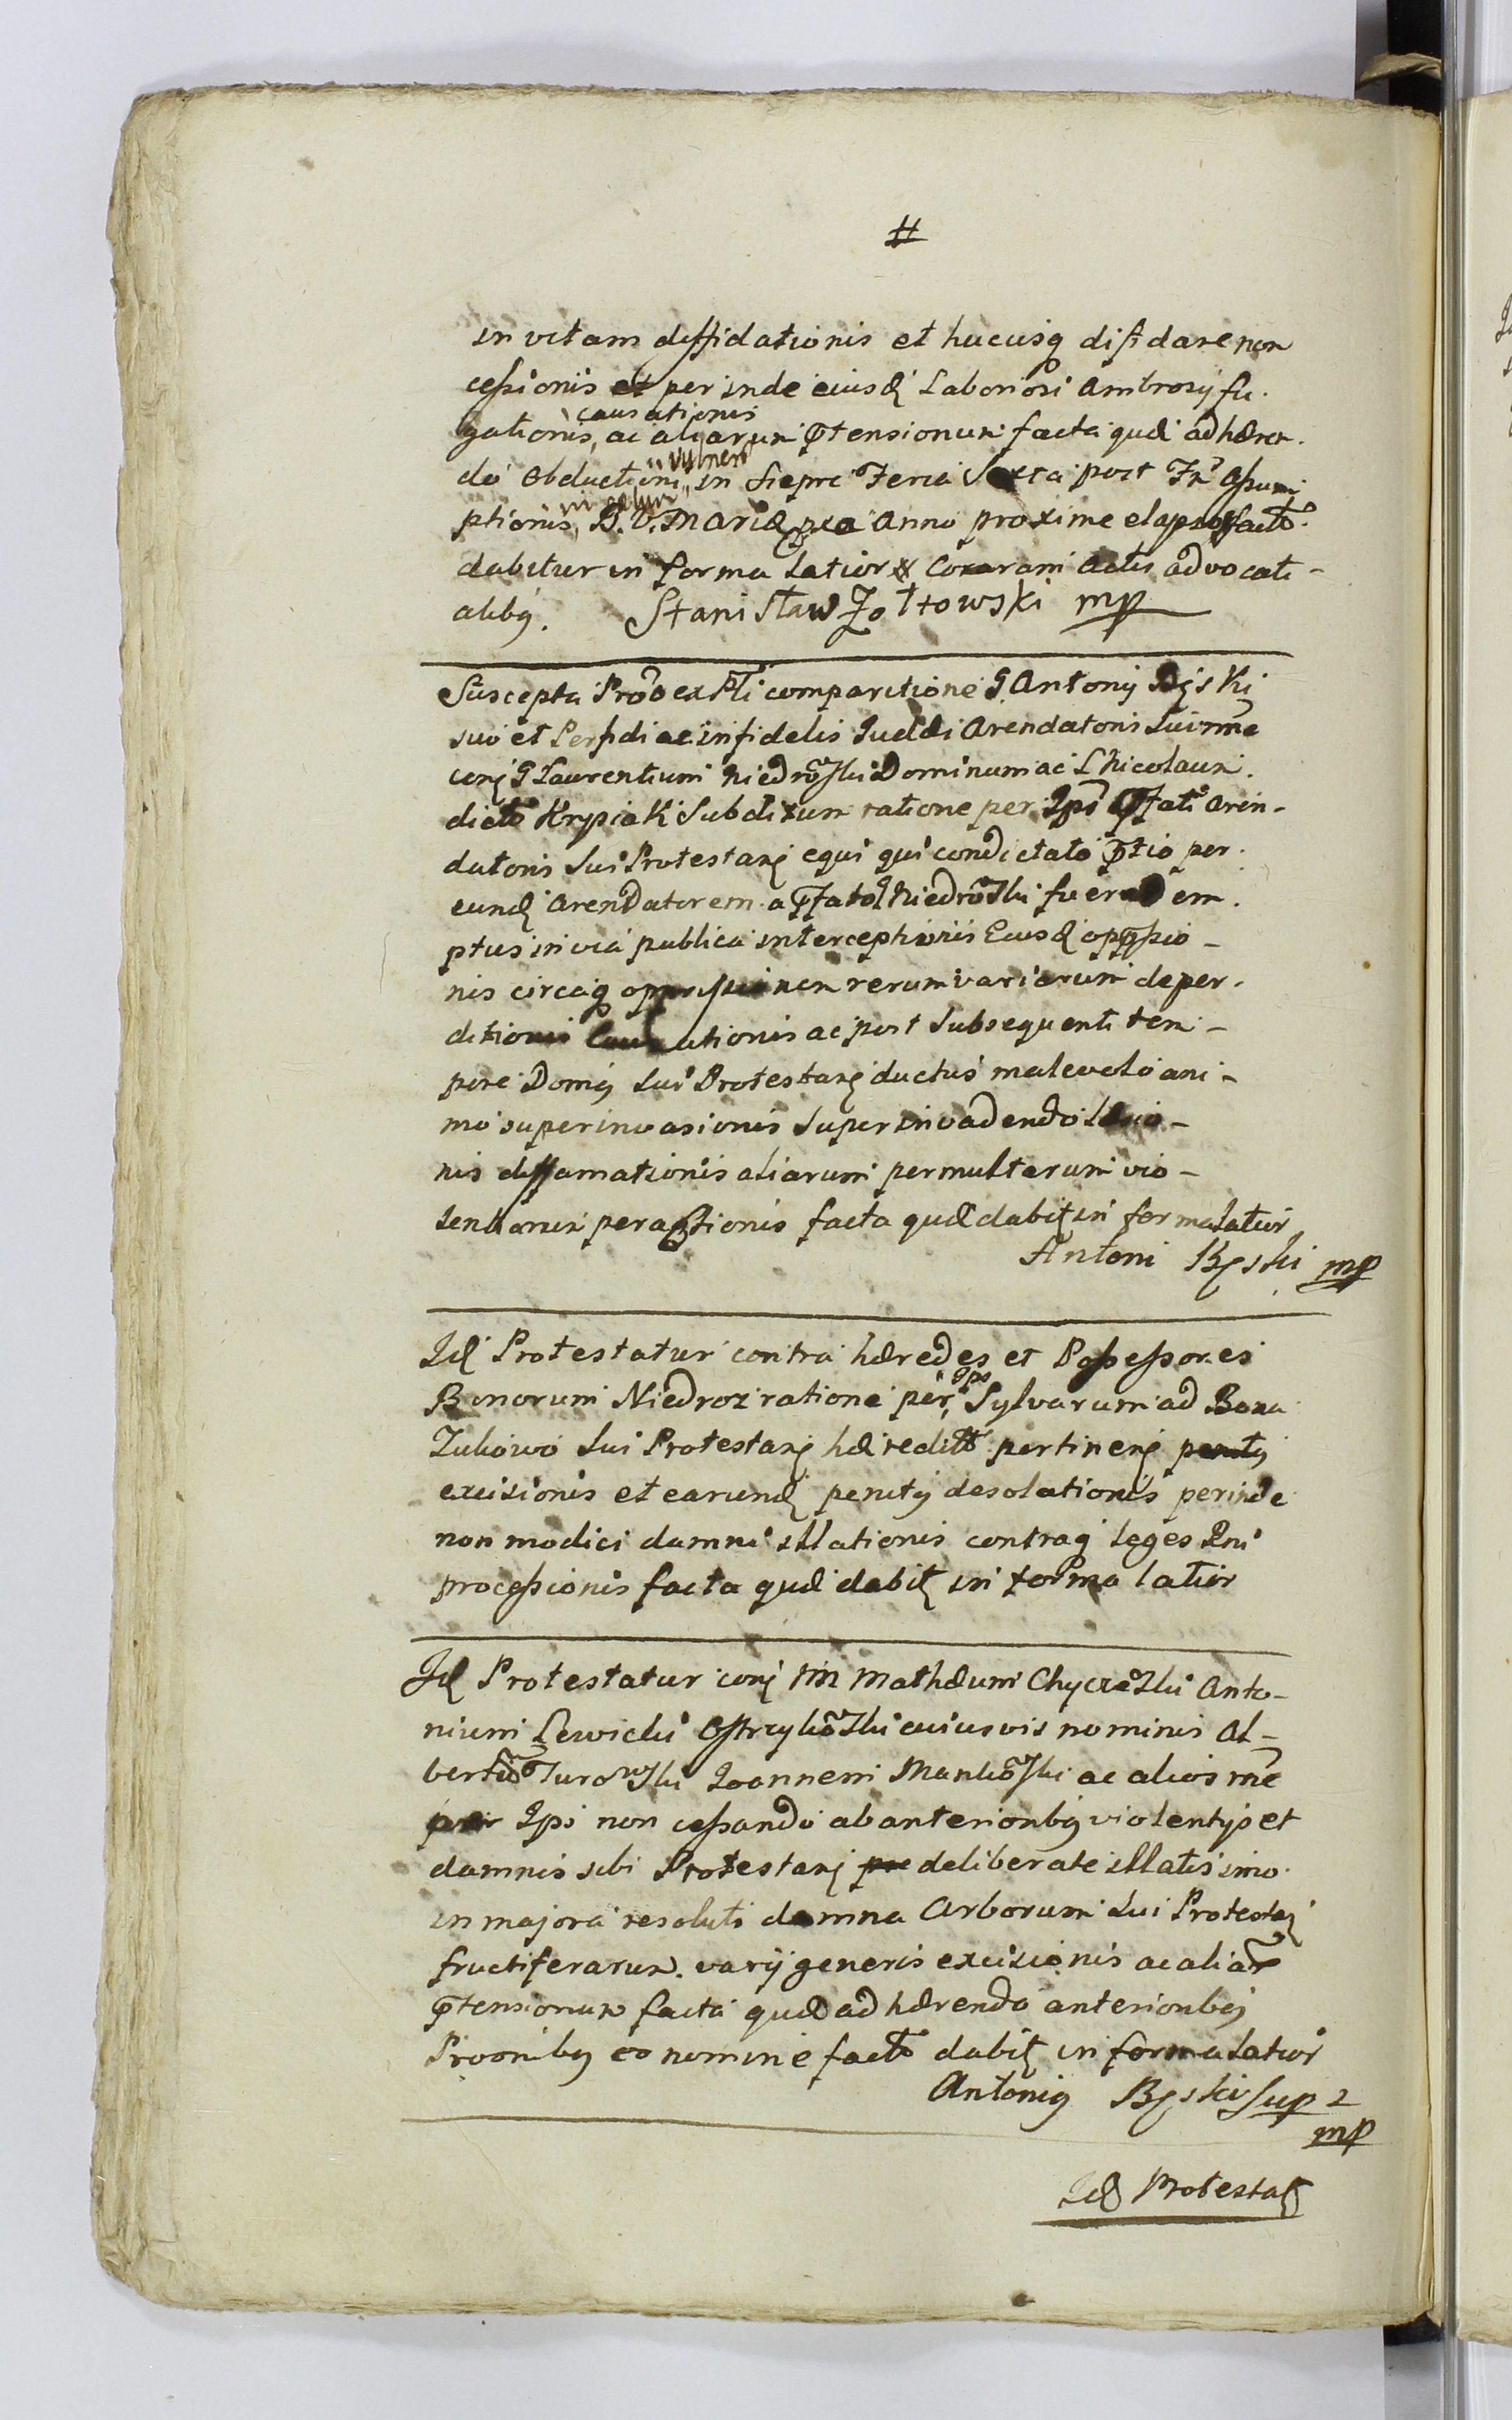 #
in vitam diffidationis et hucusq diffidare non
cessionis et per inde eiusd Laboriosi Ambrosij fu-
gationis, causationis ac aliarum ptensionum facta quæ adhæren-
do obductioni vulnerum in Sieprc Feria Sexta post Fm Assum-
ptionis B. V. Mariæ Anno proxime elapso facto
dabitur in forma latiori Coram Actis advocati-
alibq. Stanisław Zołtowski mp
Suscepta Pro ex Pti comparitione G Antonij Bęski
suo et Perfidi ac infidelis Iudæi Arendatoris sui nne
conj G Laurentium Niedroski Dominum ac L Nicolaum
dicto Krypiak Subditum ratione per Ips pfati Aren-
datoris sui Protestanj equi qui condictato ptio per
eund Arendatorem a pfato G Niedroski fuerad em-
ptus in via publica interceptionis Eiusd oppssio-
nis circaq oppressionem rerum variarum deper-
ditionis Causationis ac post subsequenti tem-
pore Domq sui Protestanj ductus malevolo ani-
mo superinvasionis superinvadendo læsio-
nis diffamationis aliarum permultarum vio-
lentiarum peractionis facta quæ dabit in forma latior
Antoni Bęski mp
Id Protestatur contra hæredes et Possessores
Bonorum Niedroz ratione per Ips Sylvarum ad Bona
Zukowo sui Protestanj hæreditt pertinenj penitq
excisionis et earund penitq desolationis perinde
non modici damni illationis contraq leges Rni
processionis facta quæ dabit in forma latior
Id Protestatur conj MM Mathæum Chyczeski Anto-
nium Lewicki Ostrzykoski cuiusvis nominis Al-
bertum Turowski Joannem Mankoski ac alios nne
per Ips non cessando ab anterioribq violentijs et
damnis sibi Protestanj pre deliberate illatis imo
in majora resoluti damna Arborum sui Protestanj
fructiferarum varij generis excisionis ac aliar
ptensionum facta quæ adhærendo anterioribq
Proonibq eo nomine facto dabit in forma latior
Antonig Bęski sup 2
mp
Id Protestat